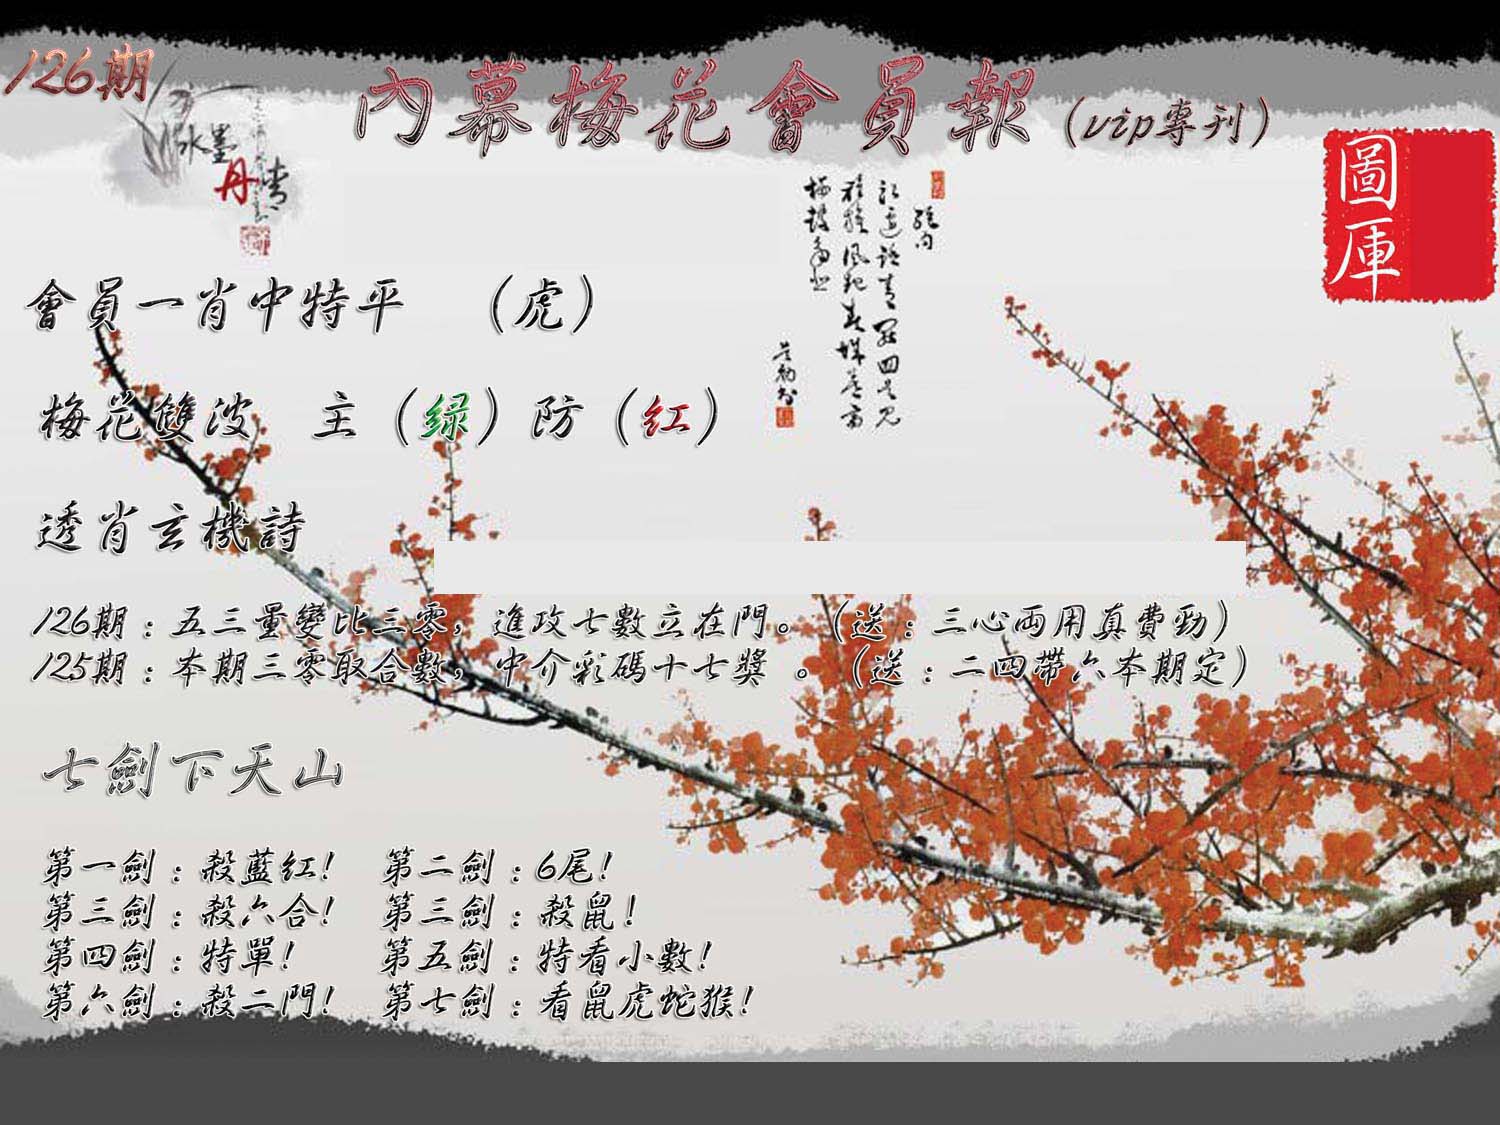 126期
內幕梅花會員報（vip專刊）
水墨
丹青
圖庫
會員一肖中特平　（虎）
梅花雙波　主（绿）防（红）
透肖玄機詩
126期：五三量變比三零，進攻七數立在門。（送：三心両用真費勁）
125期：本期三零取合數，中介彩碼十七獎 。（送：二四帶六本期定）
七劍下天山
第一劍：殺藍紅！　第二劍：6尾！
第三劍：殺六合！　第三劍：殺鼠！
第四劍：特單！　第五劍：特看小數！
第六劍：殺二門！　第七劍：看鼠虎蛇猴！